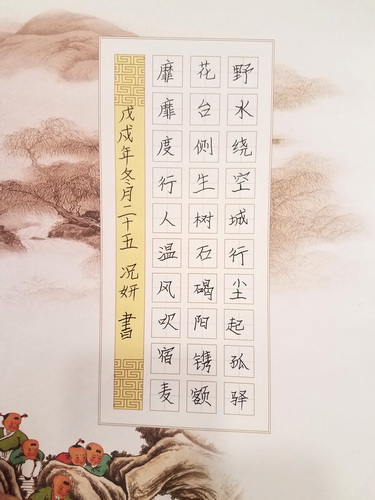 野水绕空城行尘起孤驿
花台侧生树石碣阳镌额
靡靡度行人温风吹宿麦
戊戌年冬月二十五 况妍 书